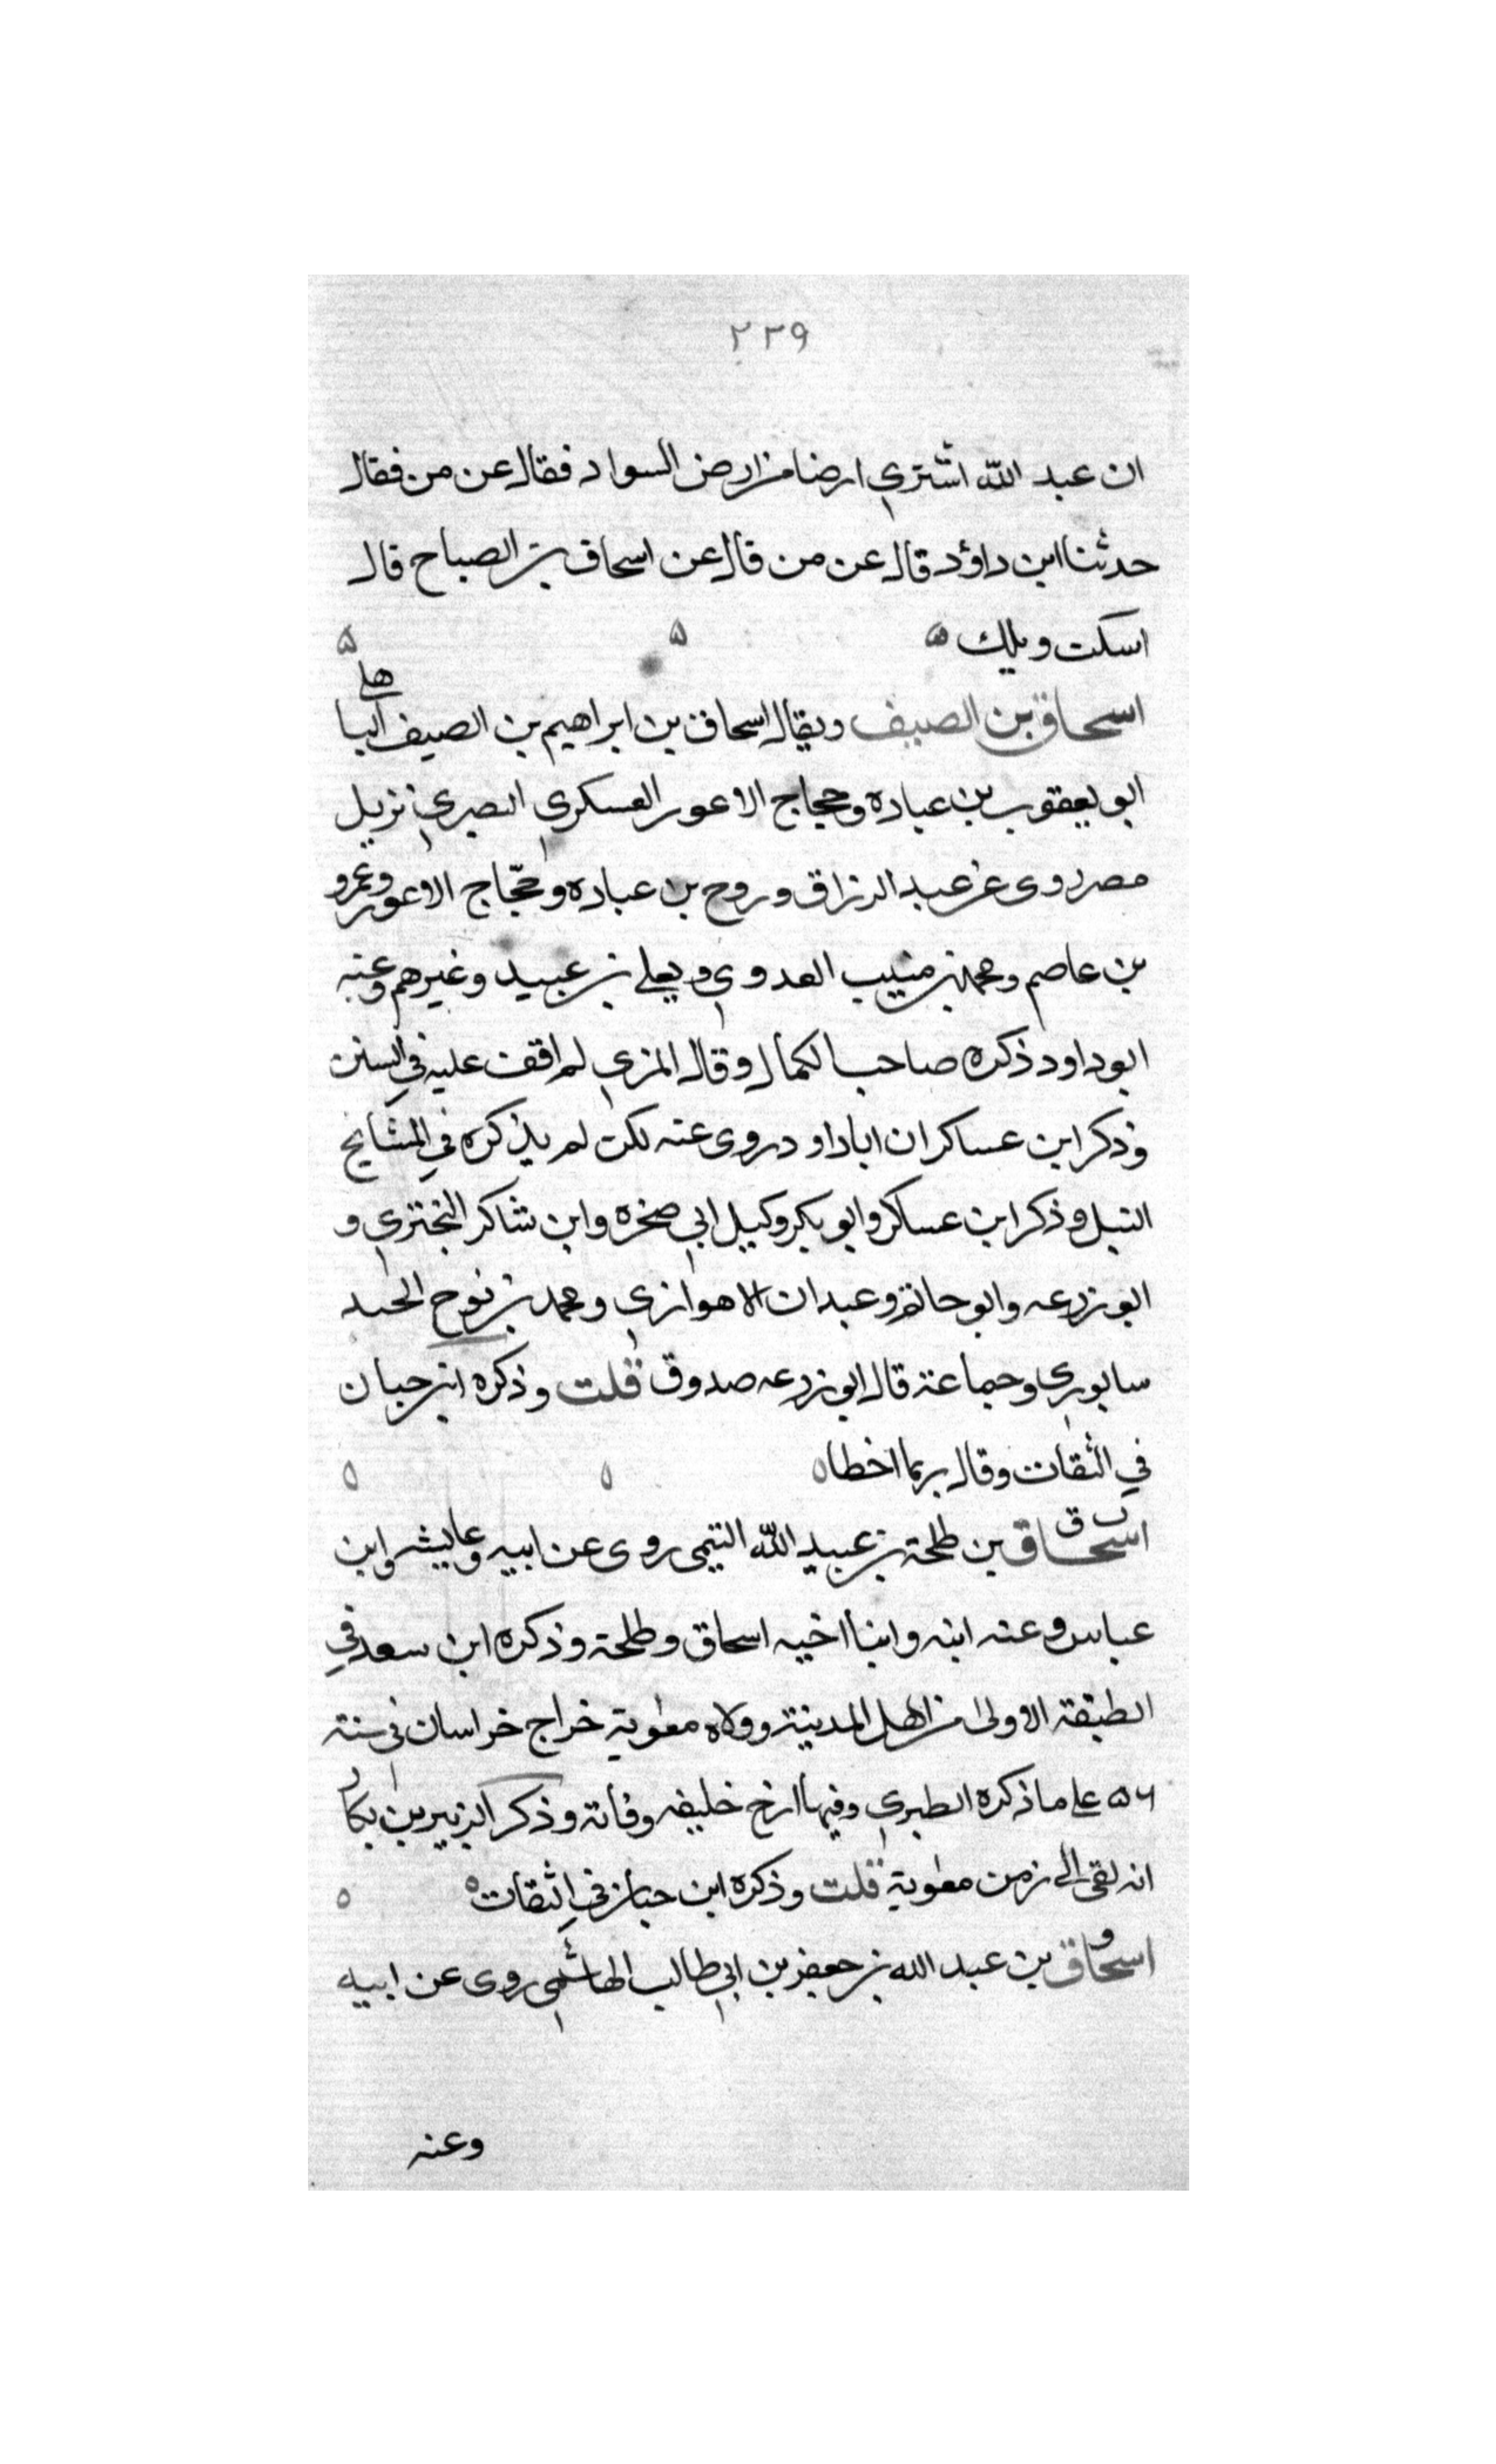 ٢٣٩
ان عبد الله اشتري ارضا من ارض السواد فقال عن من فقال
حدثنا ابن داؤد قال عن من قال عن اسحاق بن الصباح قال
اسكت ويلك
اسحاق بن الصيف ويقال اسحاق بن ابراهيم بن الصيف البا
هلي
ابو يعقوب بن عباده وحجاج الاعور العسكري البصري نزيل
مصر روى عن عبد الرزاق وروح بن عباده وحجّاج الاعور وعمرو
بن عاصم ومحمد بن منيب العدوي ويعلي بن عبيد وغيرهم وعنه
ابو داود ذكره صاحب الكمال وقال المزي لم اقف عليه في السنن
وذكر ابن عساكر ان ابا داود روى عنه لكن لم يذكره في المشايخ
النبل وذكر ابن عساكر وابو بكر وكيل ابي صخره وابن شاكر البختري و
ابو زرعه وابو حاتم وعبدان الاهوازي ومحمد بن نوح الجند
سابوري وجماعة قال ابو زرعه صدوق قلت وذكره ابن حبان
في الثقات وقال ربما اخطا
ت ق
اسحاق بن طلحة بن عبيد الله التيمى روى عن ابيه وعايشه وابن
عباس وعنه ابنه وابنا اخيه اسحاق وطلحة وذكره ابن سعد في
الطبقة الاولى من اهل المدينة وولاه معوية خراج خراسان في سنة
٥٦ على ما ذكره الطبري وفيها ارخ خليفه وفاته وذكر الزبير بن بكار
انه لقى الى زمن معوية قلت وذكره ابن حبان في الثقات
اسحاق بن عبد الله بن جعفر بن ابي طالب الهاشمى روى عن ابيه
وعنه